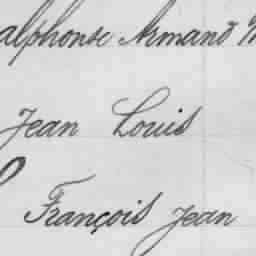 alphonse Armand
Jean Louis
François Jean